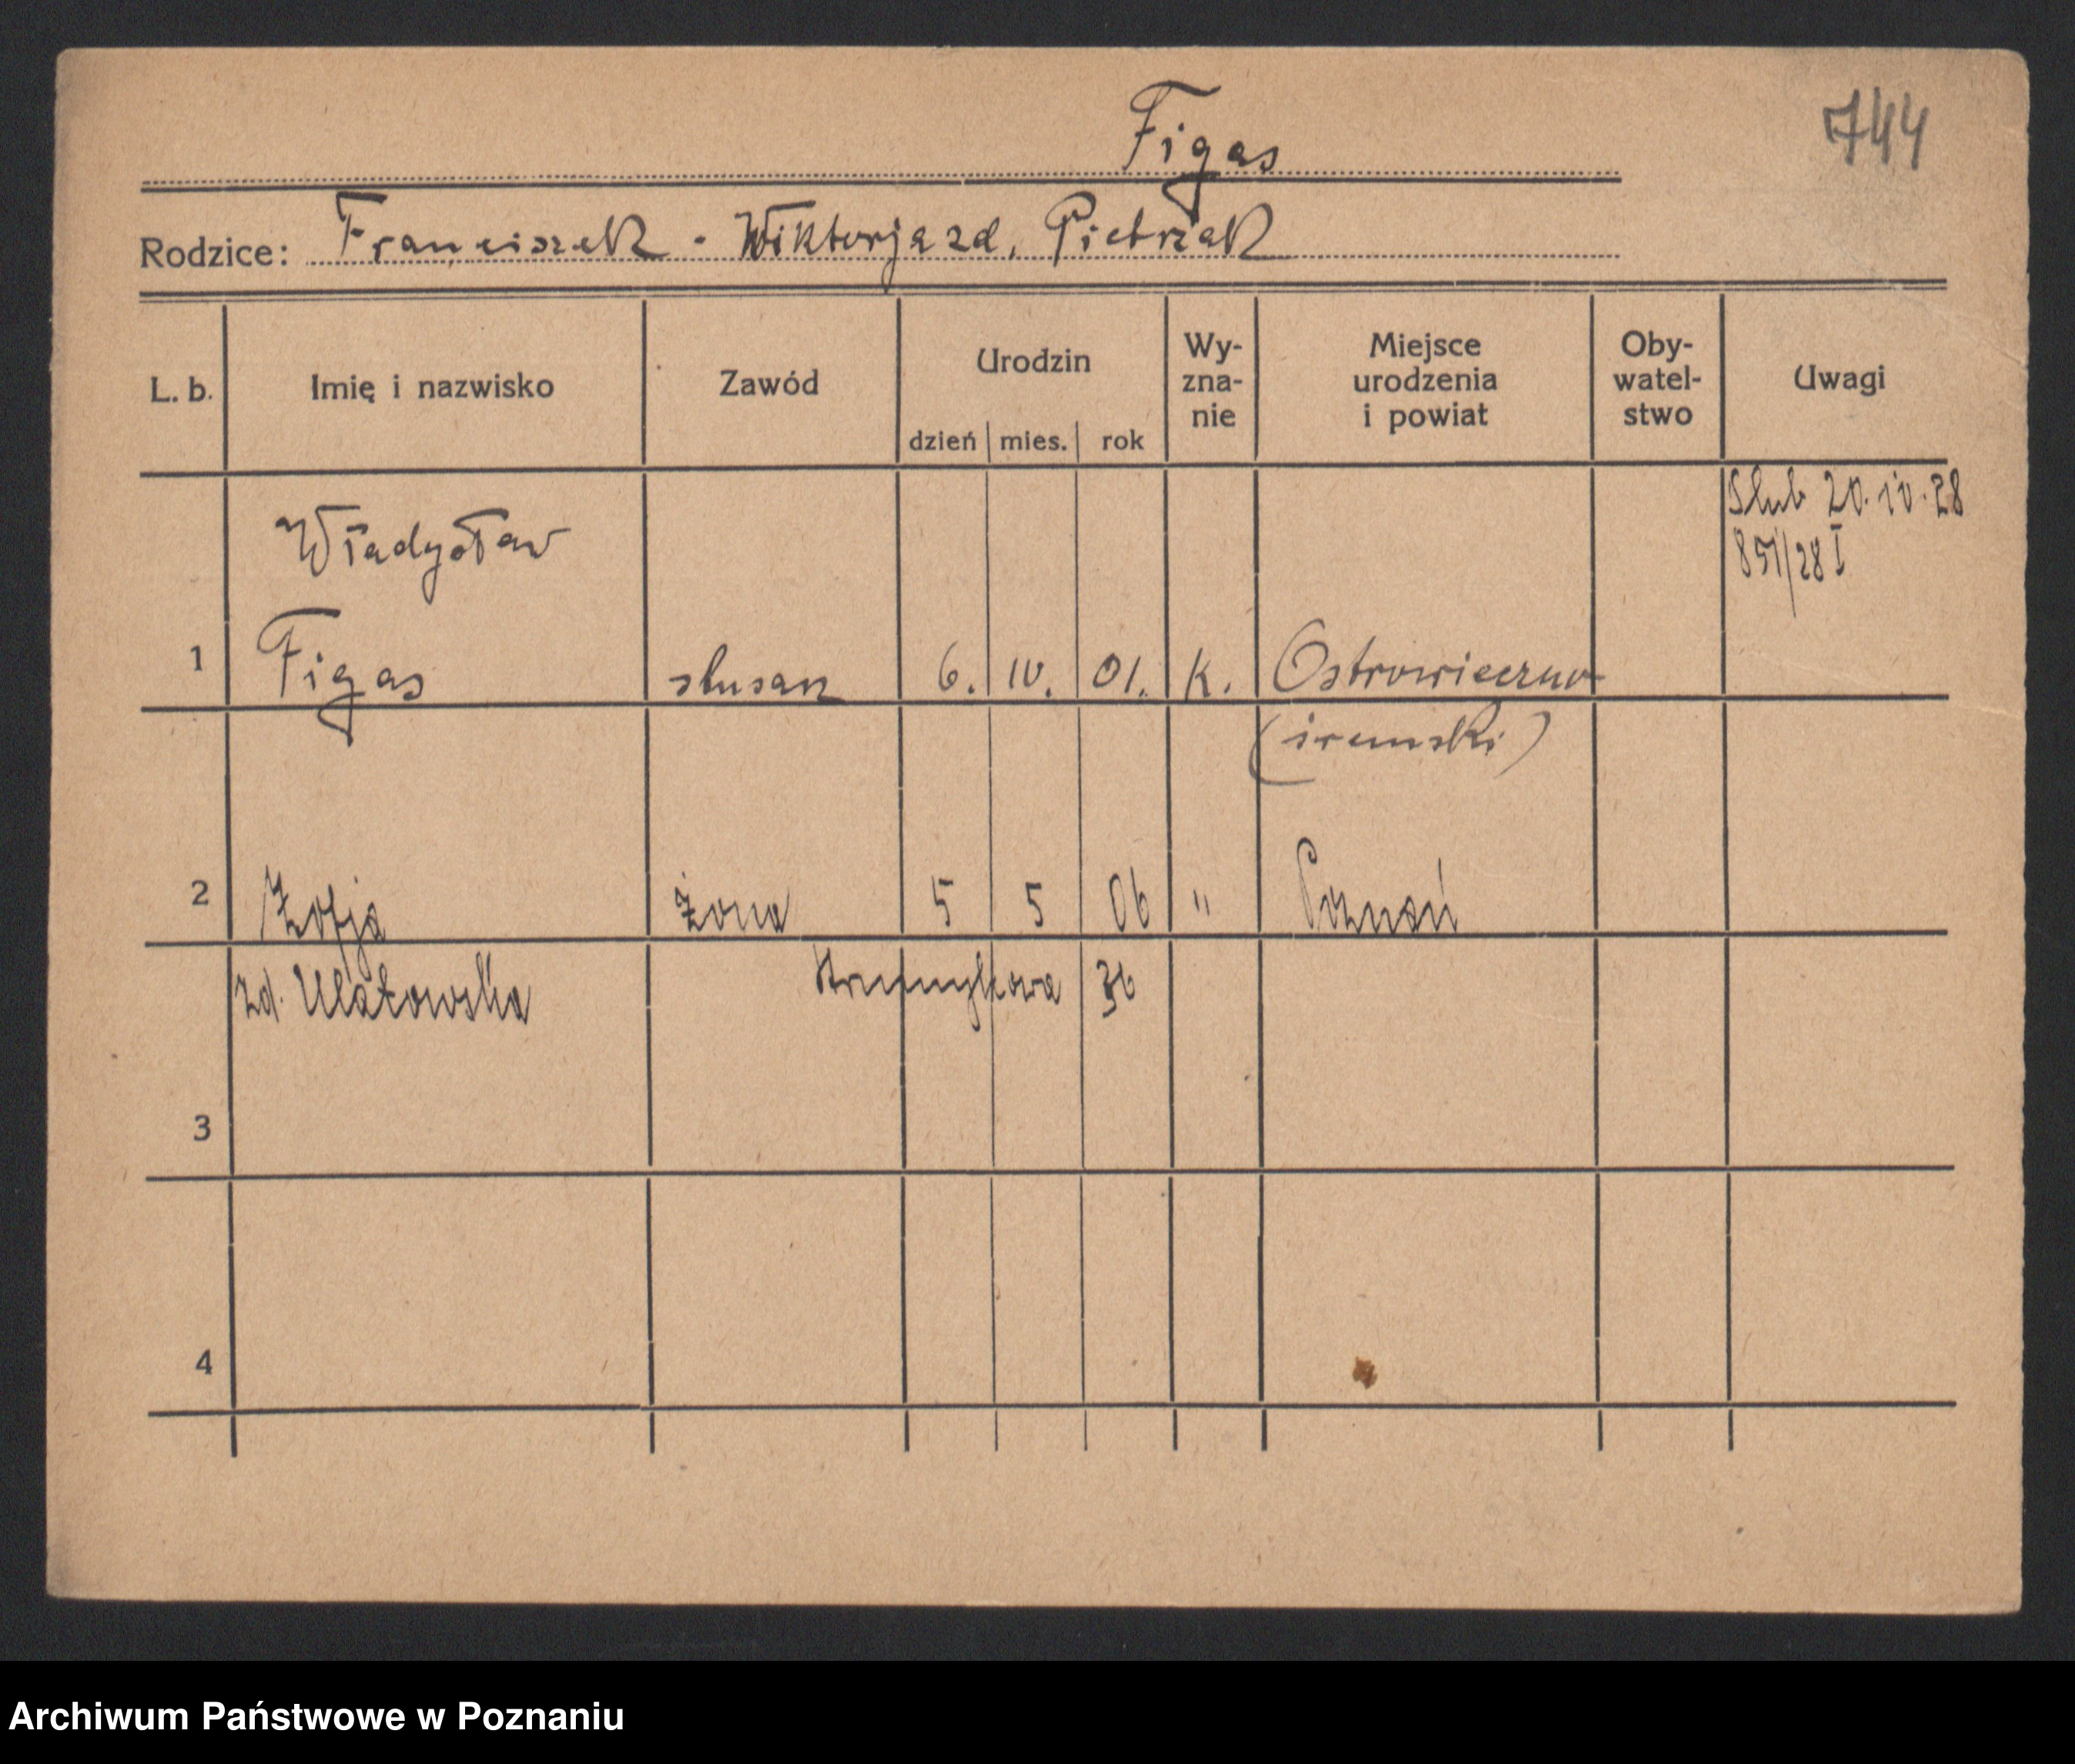 Figas
744
Rodzice: Franciszek - Wiktorja zd. Pietrzak
L. b. Imię i nazwisko Zawód Urodzin dzień mies. rok Wy-zna-nie Miejsce urodzenia i powiat Oby-watel-stwo Uwagi
Ślub 20.10.28
851/28 I
Władysław
1 Figas ślusarz 6. IV. 01. K. Ostrowieczno
(śremski)
2 Zofja żona 5 5 06 " Poznań
zd. Ulatowska Strumykowa 36
3
4
Archiwum Państwowe w Poznaniu